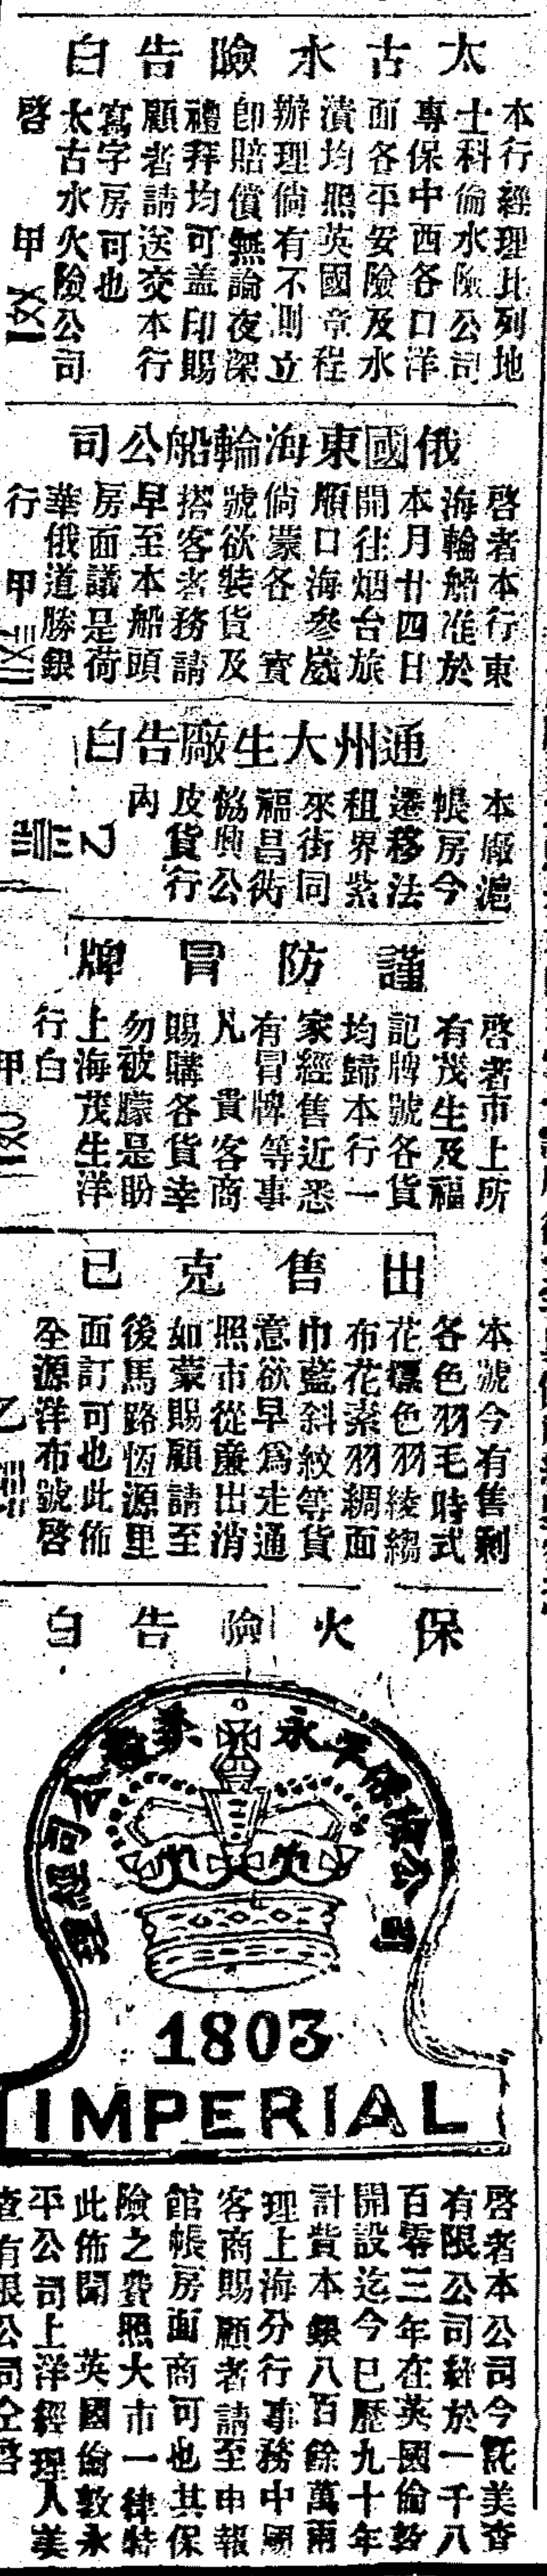 太古水險告白
本行經理比列地
士科倫水險公司
專保中西各口洋
面各平安險及水
漬均照英國章程
辦理倘有不測立
卽賠償無論夜深
禮拜均可盖印賜
顧者請送交本行
寫字房可也
太古水火險公司
啓　甲
俄國東海輪船公司
啓者本行東
海輪船准於
本月廿四日
開往烟台旅
順口海參崴
倘蒙各　寳
號欲裝貨及
搭客者務請
早至本船頭
房面議是荷
華俄道勝銀
行　甲
通州大生廠告白
本廠滬
帳房今
遷移法
租界紫
來街同
福昌衖
恊興公
皮貨行
內
謹防冒牌
啓者市上所
有茂生及福
記牌號各貨
均歸本行一
家經售近悉
有冒牌等事
凡　貴客商
賜購各貨幸
勿被朦是盼
上海茂生洋
行白　甲
出售克己
本號今有售剩
各色羽毛時式
花標色羽綾縐
布花素羽綢面
巾藍斜紋等貨
意欲早爲走通
照市從亷出消
如蒙賜顧請至
後馬路恆源里
面訂可也此佈
全源洋布號啓
乙
保火險告白
永平保險公司
美查公司經理
1803
IMPERIAL
啓者本公司今託美查
有限公司緣於一千八
百零三年在英國倫敦
開設迄今已歷九十年
計資本銀八百餘萬兩
理上海分行事務中國
客商賜顧者請至申報
館帳房面商可也其保
險之費照大市一律特
此佈聞　英國倫敦永
平公司上洋經理人美
查有限公司仝啓